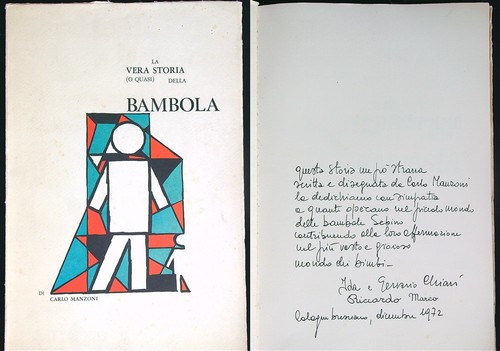 LA
VERA STORIA
(O QUASI) DELLA
BAMBOLA
DI
CARLO MANZONI
questa storia un pò strana
scritta e disegnata da Carlo Manzoni
la dedichiamo con simpatia
a quanti operano nel piccolo mondo
delle bambole Sebino
contribuendo alla loro affermazione
nel più vasto e gioioso
mondo dei bimbi-
Ida e Gervasio Chiari
Riccardo Marco
Cologne bresciano, dicembre 1972